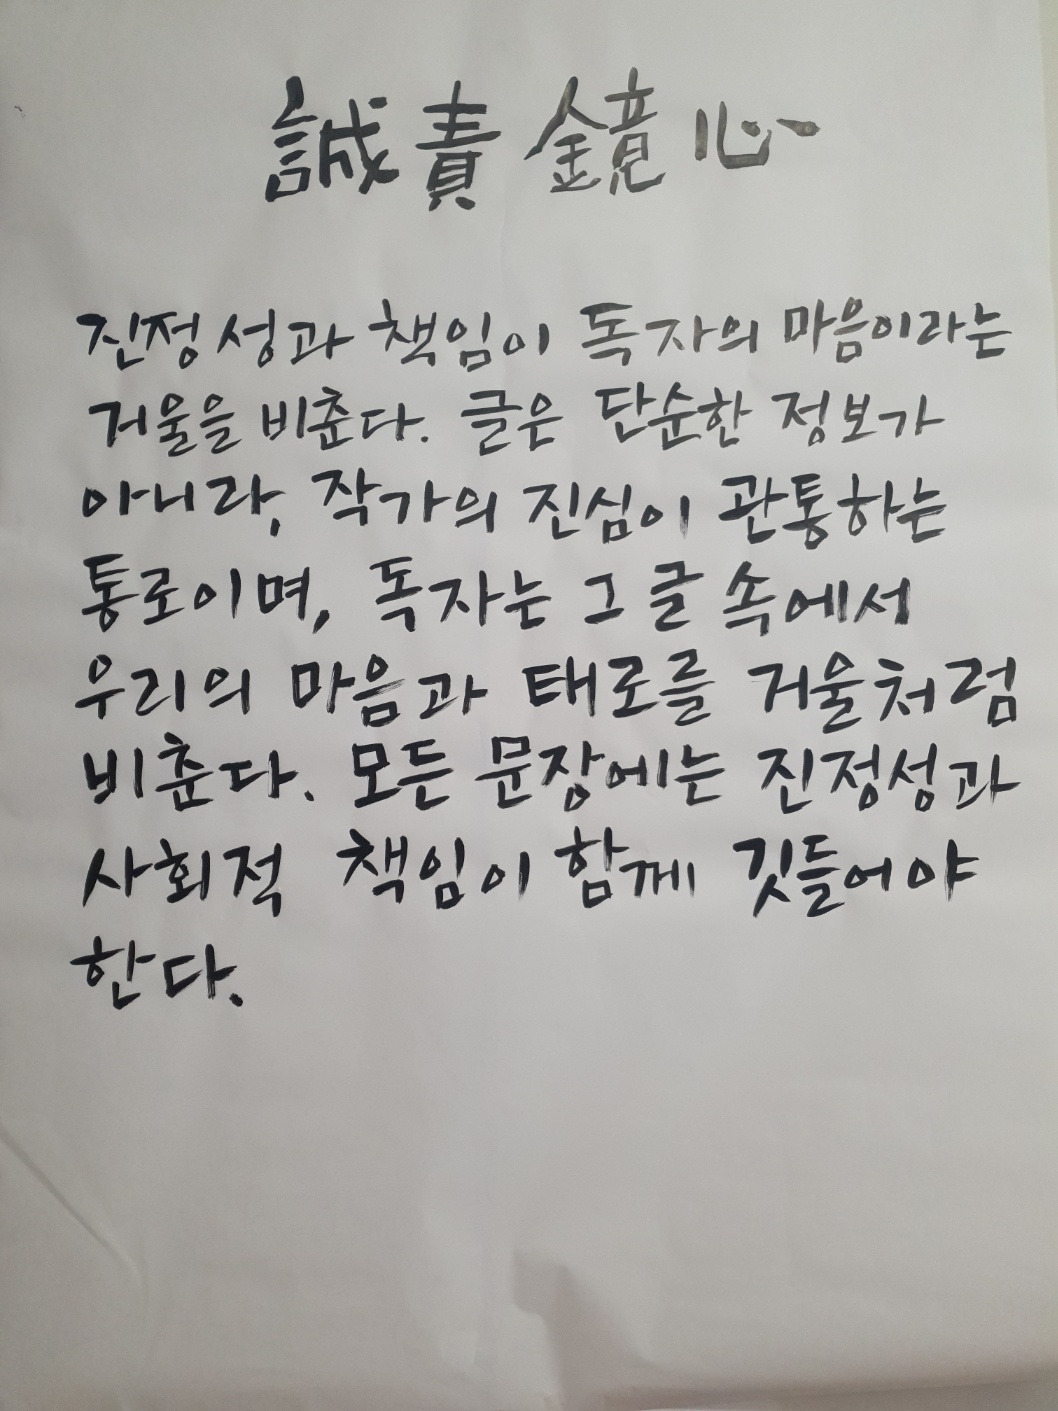 誠責鏡心
진정성과 책임이 독자의 마음이라는
거울을 비춘다. 글은 단순한 정보가
아니라, 작가의 진심이 관통하는
통로이며, 독자는 그 글 속에서
우리의 마음과 태로를 거울처럼
비춘다. 모든 문장에는 진정성과
사회적 책임이 함께 깃들어야
한다.